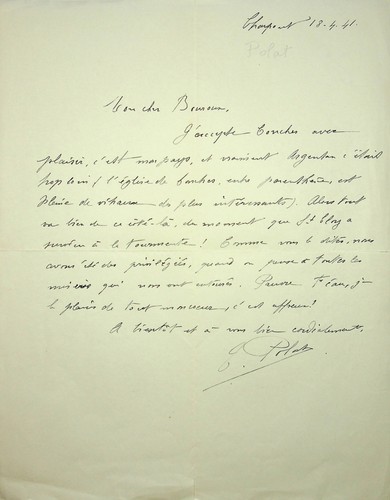 Charpont 18-4-41.
Polat
Mon cher Bouroux,
J'accepte Conches avec
plaisir, c'est mon pays, et vraiment Argentan c'était
trop loin (l'église de Conches, entre parenthèses, est
pleine de vitraux des plus intéressants). Alors tout
va bien de ce côté-là, du moment que St Eloy a
survécu à la tourmente ! Comme vous le dites, nous
avons été des privilégiés, quand on pense à toutes les
misères qui nous ont entourés. Pauvre je
le plains de tout mon cœur, c'est affreux !
A bientôt et à vous bien cordialement,
Polat